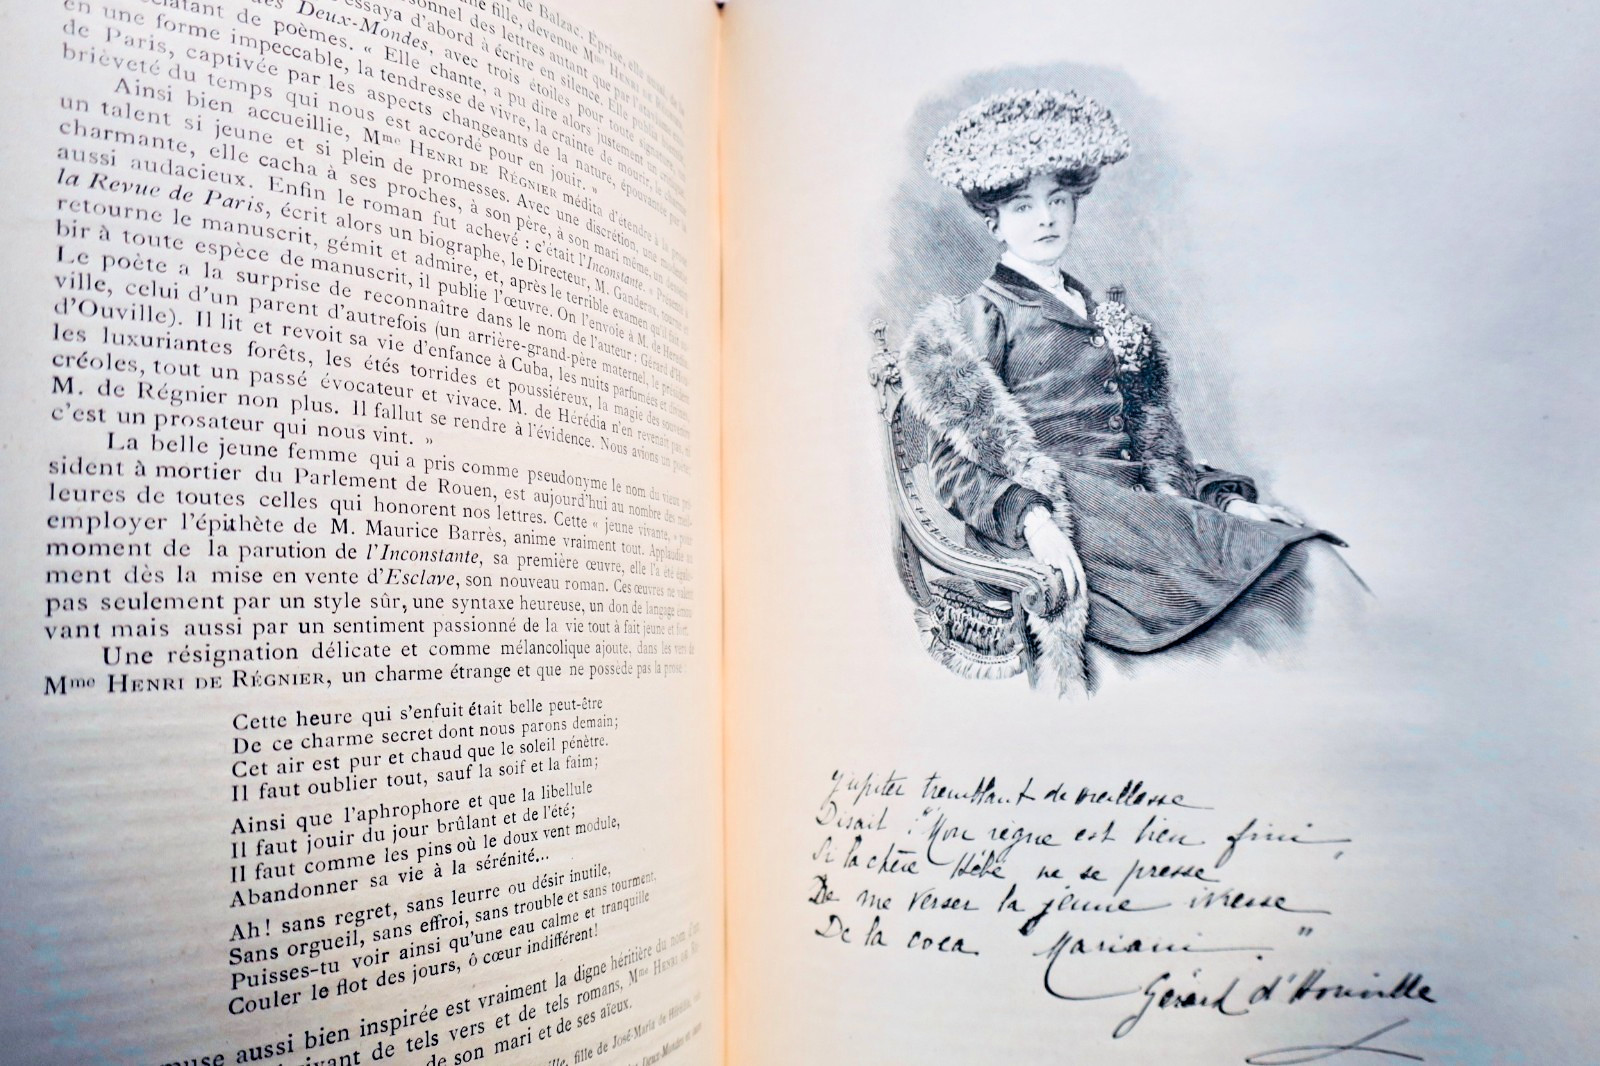 de Balzac. Éprise,
une fille, devenue Mme HENRI DE
sonnel des lettres autant que par
essaya d'abord à écrire en silence. Elle publia
Deux-Mondes, avec trois étoiles pour toute signature, un
éclatant de poèmes. « Elle chante, a pu dire alors justement un
en une forme impeccable, la tendresse de vivre, la crainte de mourir, le charme
de Paris, captivée par les aspects changeants de la nature, épouvantée par la
brièveté du temps qui nous est accordé pour en jouir. »
Ainsi bien accueillie, Mme HENRI DE RÉGNIER médita d'étendre à la prose
un talent si jeune et si plein de promesses. Avec une discrétion, une modestie
charmante, elle cacha à ses proches, à son père, à son mari même, un dessein
aussi audacieux. Enfin le roman fut achevé : c'était l'Inconstante. « Présenté à
la Revue de Paris, écrit alors un biographe, le Directeur, M. Ganderax, tourne et
retourne le manuscrit, gémit et admire, et, après le terrible examen qu'il fait su-
bir à toute espèce de manuscrit, il publie l'œuvre. On l'envoie à M. de Hérédia.
Le poète a la surprise de reconnaître dans le nom de l'auteur : Gérard d'Hou-
ville, celui d'un parent d'autrefois (un arrière-grand-père maternel, le président
d'Ouville). Il lit et revoit sa vie d'enfance à Cuba, les nuits parfumées et
les luxuriantes forêts, les étés torrides et poussiéreux, la magie des souvenirs
créoles, tout un passé évocateur et vivace. M. de Hérédia n'en revenait pas, ni
M. de Régnier non plus. Il fallut se rendre à l'évidence. Nous avions un poète;
c'est un prosateur qui nous vint. »
La belle jeune femme qui a pris comme pseudonyme le nom du vieux pré-
sident à mortier du Parlement de Rouen, est aujourd'hui au nombre des meil-
leures de toutes celles qui honorent nos lettres. Cette « jeune vivante, » pour
employer l'épithète de M. Maurice Barrès, anime vraiment tout. Applaudie au
moment de la parution de l'Inconstante, sa première œuvre, elle l'a été égale-
ment dès la mise en vente d'Esclave, son nouveau roman. Ces œuvres ne valent
pas seulement par un style sûr, une syntaxe heureuse, un don de langage émou-
vant mais aussi par un sentiment passionné de la vie tout à fait jeune et fort.
Une résignation délicate et comme mélancolique ajoute, dans les vers de
Mme HENRI DE RÉGNIER, un charme étrange et que ne possède pas la prose :
Cette heure qui s'enfuit était belle peut-être
De ce charme secret dont nous parons demain;
Cet air est pur et chaud que le soleil pénètre.
Il faut oublier tout, sauf la soif et la faim;
Ainsi que l'aphrophore et que la libellule
Il faut jouir du jour brûlant et de l'été;
Il faut comme les pins où le doux vent module,
Abandonner sa vie à la sérénité...
Ah! sans regret, sans leurre ou désir inutile,
Sans orgueil, sans effroi, sans trouble et sans tourment,
Puisses-tu voir ainsi qu'une eau calme et tranquille
Couler le flot des jours, ô cœur indifférent!
muse aussi bien inspirée est vraiment la digne héritière du nom d'un
de tels vers et de tels romans, Mme HENRI DE
de son mari et de ses aïeux.
fille de José-Maria de Hérédia,
Deux-Mondes
Jupiter tremblant de vieillesse
Disait : "Mon règne est bien fini,
Si la chère Hébé ne se presse
De me verser la jeune ivresse
De la coca Mariani."
Gérard d'Houville